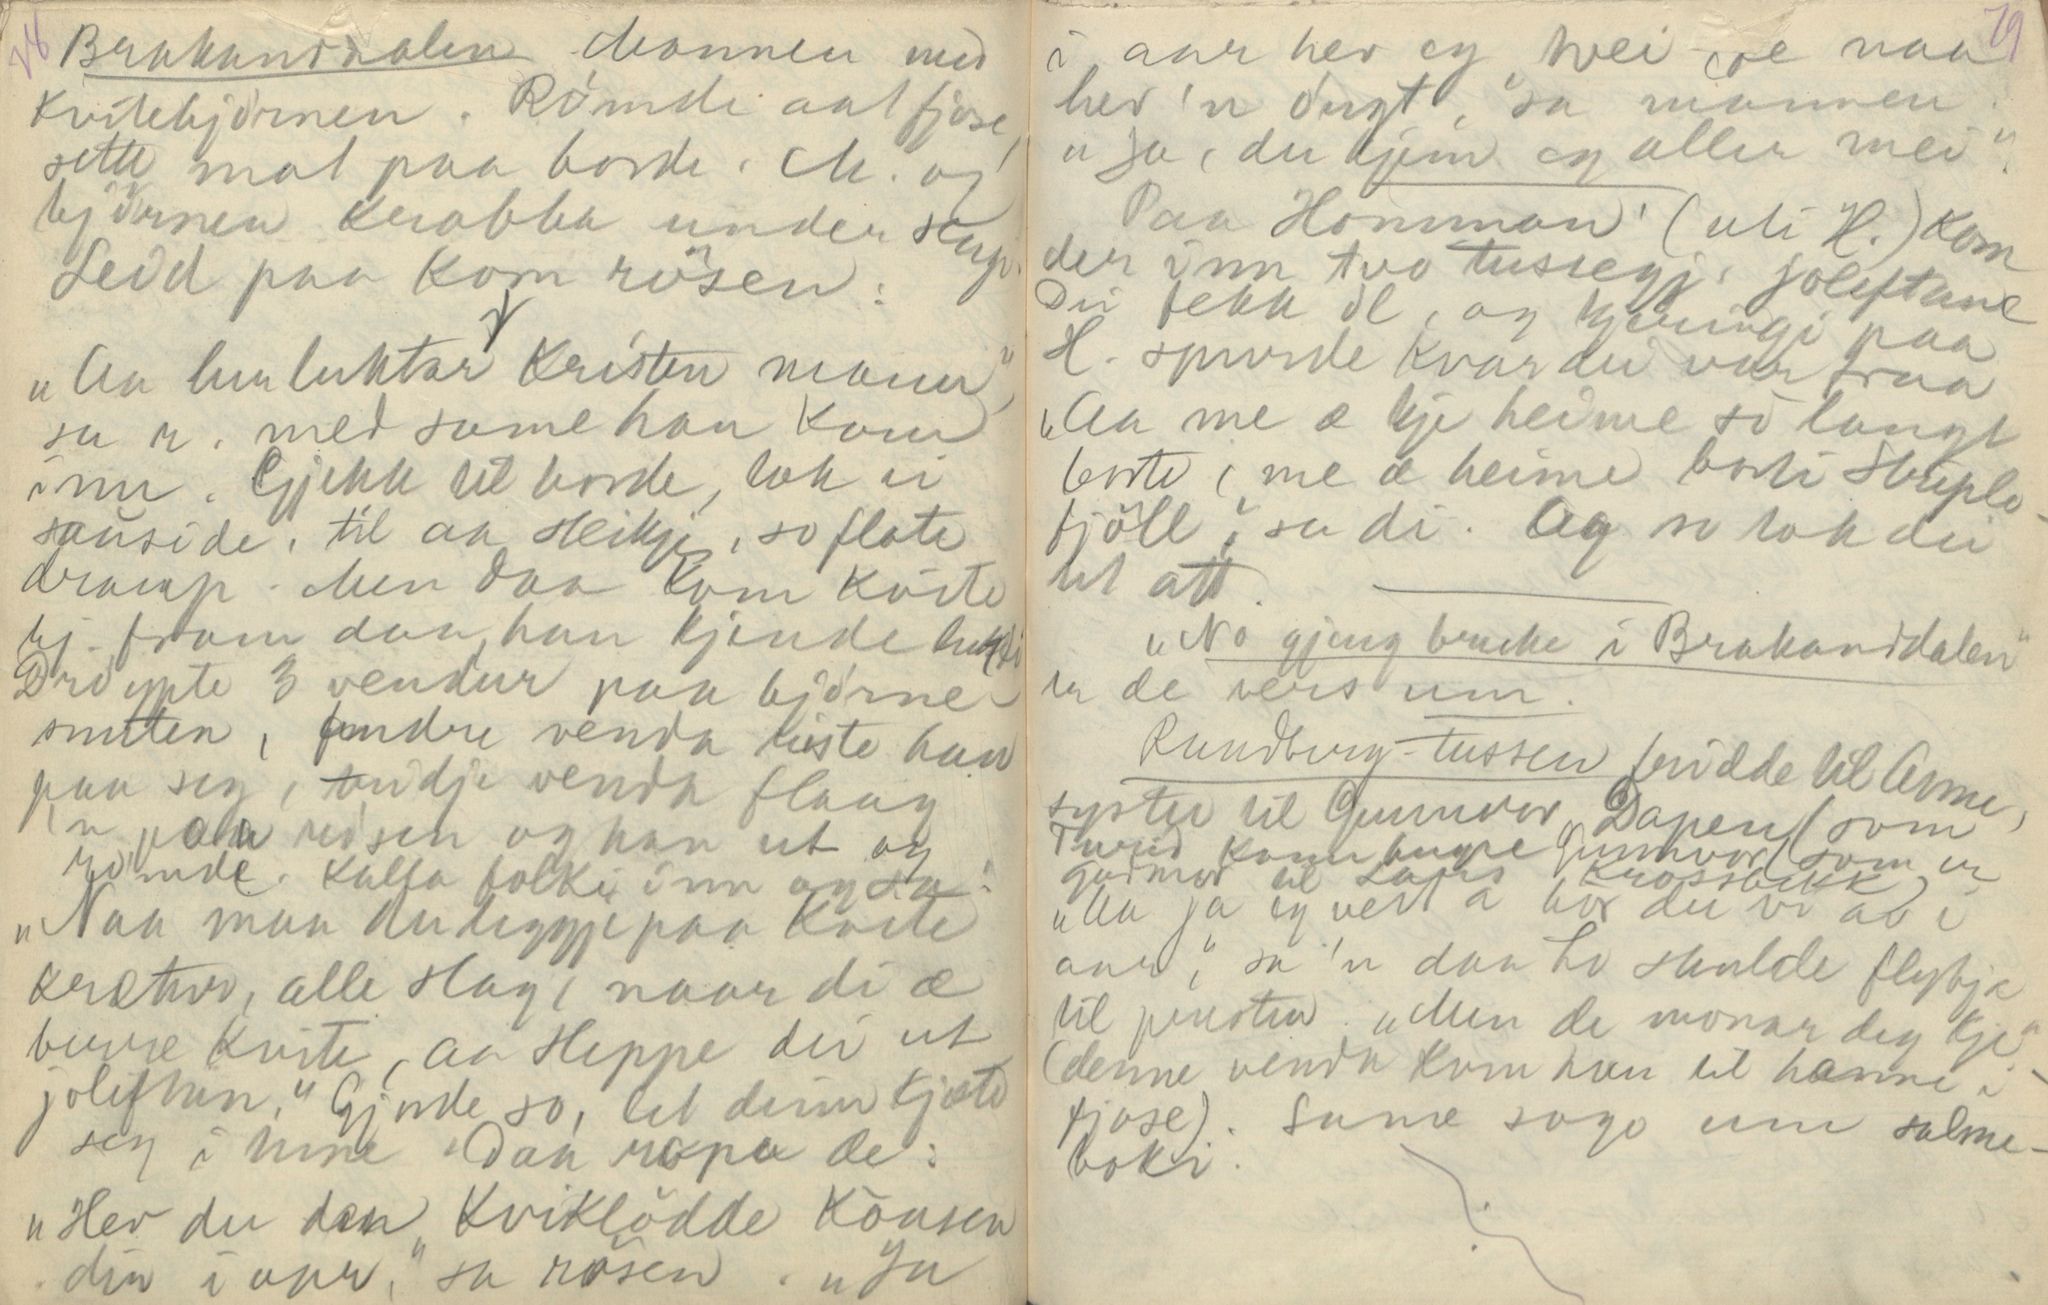 78
Brakanddalen Mannen med
kvitebjørnen. Rømde aat fjøse,
sette mat paa borde. M. og
bjørnen krabba under
Leid paa kom risen:
„Aa her luktar kristen mann",
sa r. med same han kom
inn. Gjekk til borde, tok ei
sauside, til aa steikje, so flote
draup. Men daa kom kvite
bj. fram daa han kjende lukti
Drøypte 3 vendur paa bjørne-
snuten, fyndre venda riste han
paa seg, tridje venda flaag
'n paa risen og han ut og
rømde. Kalla folki inn og sa:
„Naa maa du leggje paa kvite
krætur, alle slag, naar di æ
berre kvite, aa sleppe dei ut
joleftan." Gjorde so, let deim kjøte
seg i tune. Daa ropa de:
„Hev du den kviklödde köusen
din i aar," sa risen. „Ja
79
i aar hev eg tvei
hev 'n öugt," sa mannen.
„Ja, du kjem eg aller mei".
Paa Homman' (uti H.) kom
der inn two tussegj. joleftane
Dei fekk öl, og kjeringi paa
H. spurde kvar dei var fraa
„Aa me æ kje heime so langt
borte, me æ heime borti Skuplo-
fjöll," sa di. Og so tok dei
ut att.
„No gjeng bruke i Brakanddalen"
er de vers um.
Rundberg-tussen fridde til Anne,
syster til Gunnvor Dapen (som
Turid kann hugse Gunnvor) som er
gudmor til Lars Krossbekk)
„Aa ja eg veit a hör du vi av i
aar," sa 'n daa ho skulde flytje
til presten. „Men de monar deg kje"
(denne venda kom han til hanne i
fjose). Same sogo um salme-
boki.